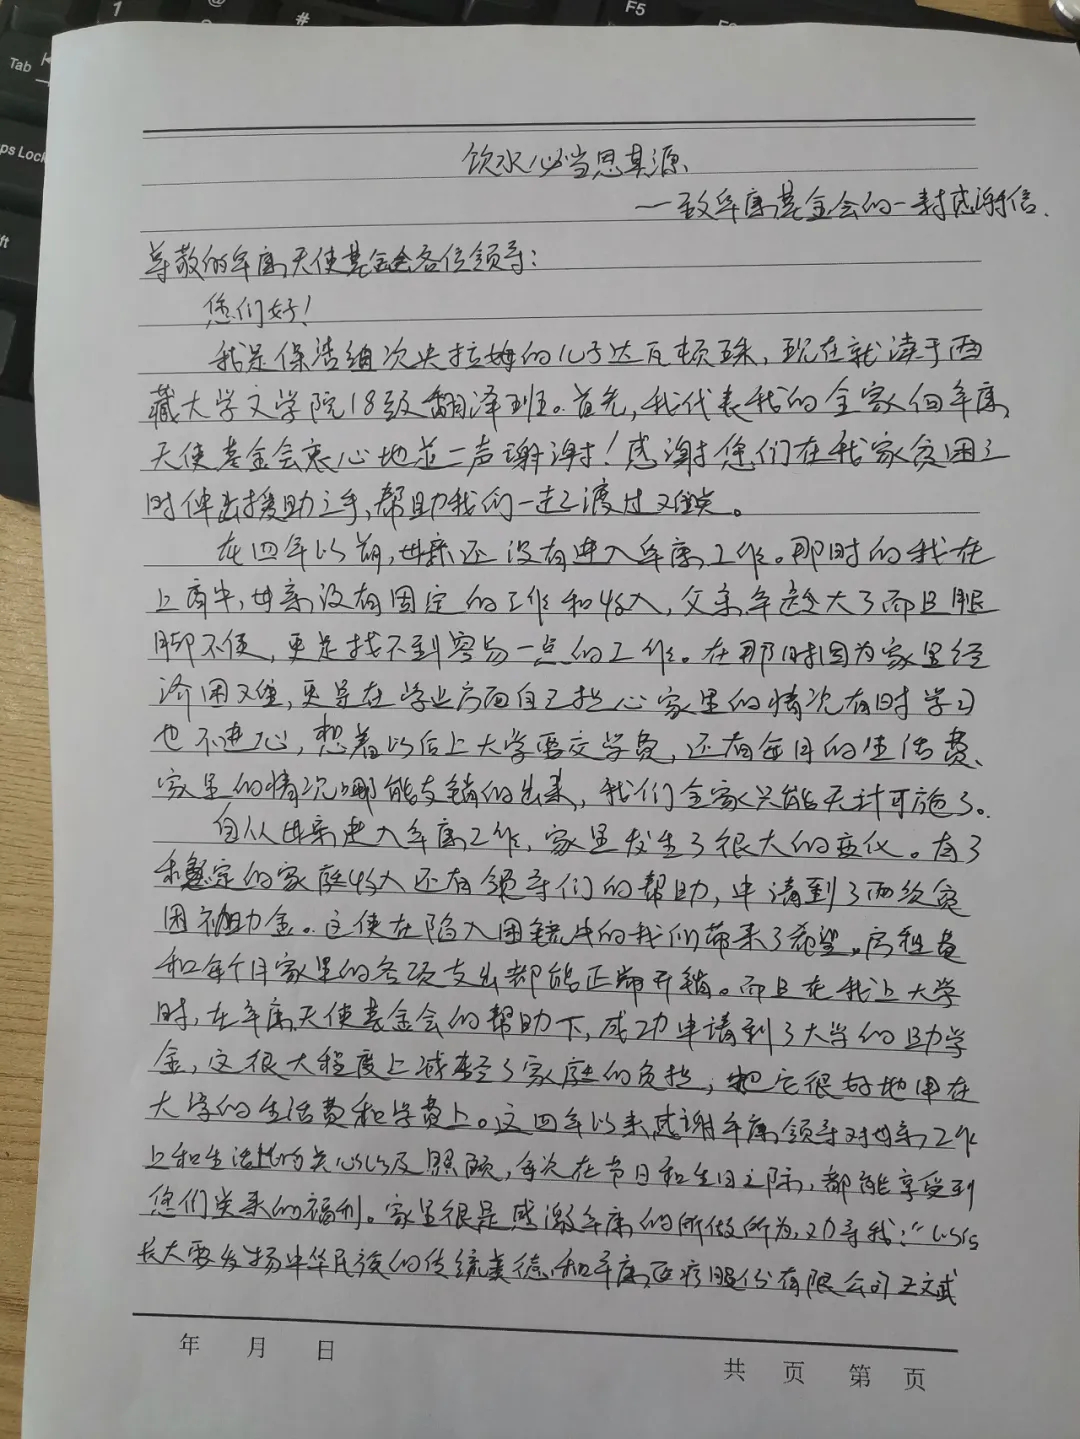 1 @ #
F5
Tab
ps Lock
饮水必当思其源
一致阜康基金会的一封感谢信.
尊敬的阜康天使基金会各位领导:
您们好!
我是保洁组次央拉姆的儿子达瓦顿珠,现在就读于西
藏大学文学院18级翻译班。首先,我代表我的全家向阜康
天使基金会衷心地道一声谢谢!感谢您们在我家贫困之
时伸出援助之手,帮助我们一起渡过难关。
在四年以前,母亲还没有进入阜康工作。那时的我在
上高中,母亲没有固定的工作和收入,父亲年迈大了而且腿
脚不便,更是找不到容易一点的工作。在那时因为家里经
济困难,更是在学业方面自己担心家里的情况有时学习
也不进心,想着以后上大学要交学费,还有每月的生活费、
家里的情况哪能支销的出来,我们全家只能无计可施了。
自从母亲进入阜康工作,家里发生了很大的变化。有了
稳定的家庭收入还有领导们的帮助,申请到了两次贫
困补助金。这使在陷入困境中的我们带来了希望。房租费
和每个月家里的各项支出都能正常开销。而且在我上大学
时,在阜康天使基金会的帮助下,成功申请到了大学的助学
金,这很大程度上减轻了家庭的负担,把它很好地用在
大学的生活费和学费上。这四年以来感谢阜康领导对母亲工作
上和生活上的关心以及照顾,每次在节日和生日之际,都能享受到
您们发来的福利。家里很是感激阜康的所做所为,劝导我:“以后
长大要发扬中华民族的传统美德,和阜康医疗股份有限公司王文武
年 月 日
共 页 第 页